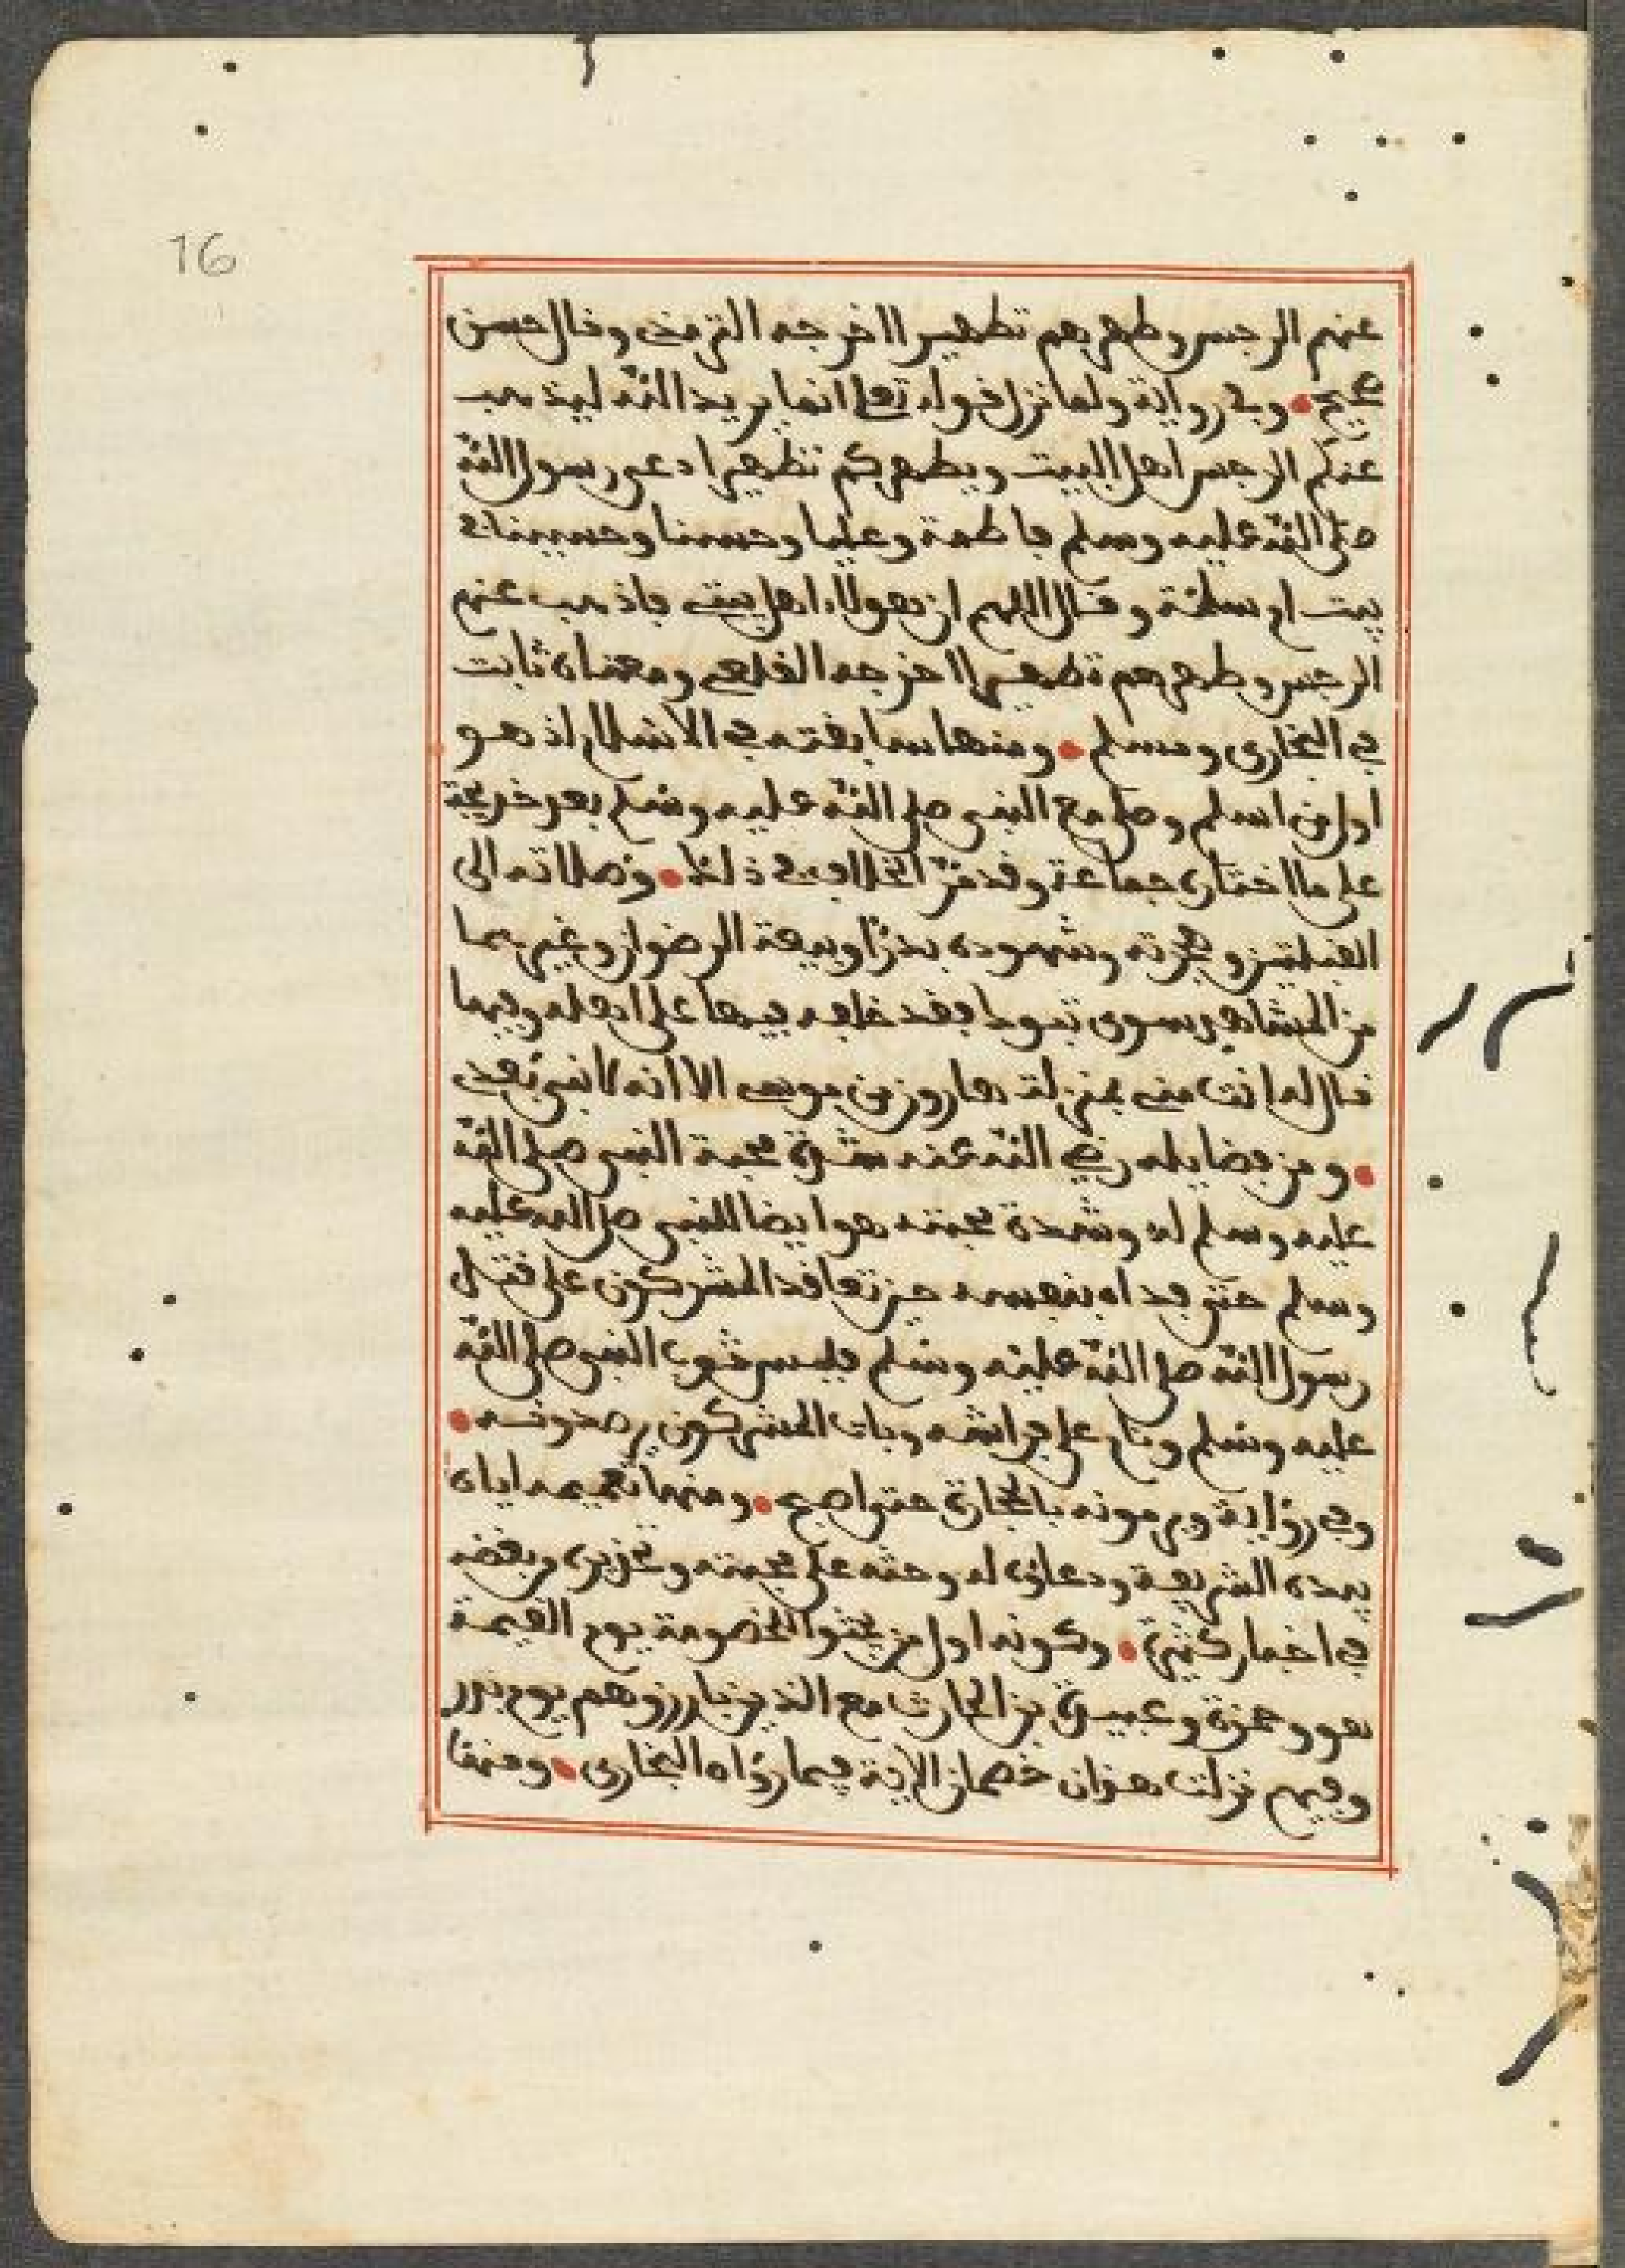 16
عنهم الرجس وطهرهم تطهيرا اخرجه الترمذى وقال حسن
صحيح وفى رواية ولما نزل قوله تعلى انما يريد الله ليذهب
عنكم الرجس اهل البيت ويطهركم تطهيرا دعى رسول الله
صلى الله عليه وسلم فاطمة وعليا وحسنا وحسينا فى
بيت ام سلمة وقال اللهم ان هولاء اهل بيتى فاذهب عنهم
الرجس وطهرهم تطهيرا اخرجه القلعى ومعناه ثابت
فى البخارى ومسلم ومنها سابقته فى الاسلام اذ هو
اول من اسلم وصلى مع النبى صلى الله عليه وسلم بعد خديجة
على ما اختاره جماعة وقد مر الخلاف فى ذلك وصلاته الى
القبلتين وهجرته وشهوده بدرا وبيعة الرضوان وغيرهما
من المشاهد سوى تبوك فقد خلفه فيها على اهله وفيها
قال له انت منى بمنزلة هارون من موسى الا انه لا نبى بعدى
ومن فضايله رضى الله عنه شدة محبة النبى صلى الله
عليه وسلم له وشدة محبته هو ايضا للنبى صلى الله عليه
وسلم حتى فداه بنفسه حين تعاقد المشركون على قتل
رسول الله صلى الله عليه وسلم فلبس ثوب النبى صلى الله
عليه وسلم ونام على فراشه وبات المشركون يرصدونه
وفى رواية ويرمونه بالحجارة حتى اصبح ومنها تعميمه اياه
بيده الشريفة ودعاؤه له وحثه على محبته وتحذيره من بغضه
فى اخبار كثيرة وكونه اول من يجثو للخصومة يوم القيمة
هو وحمزة وعبيدة بن الحارث مع الذين بارزوهم يوم بدر
وفيهم نزلت هذان خصمان الاية فيما رواه البخارى ومنها